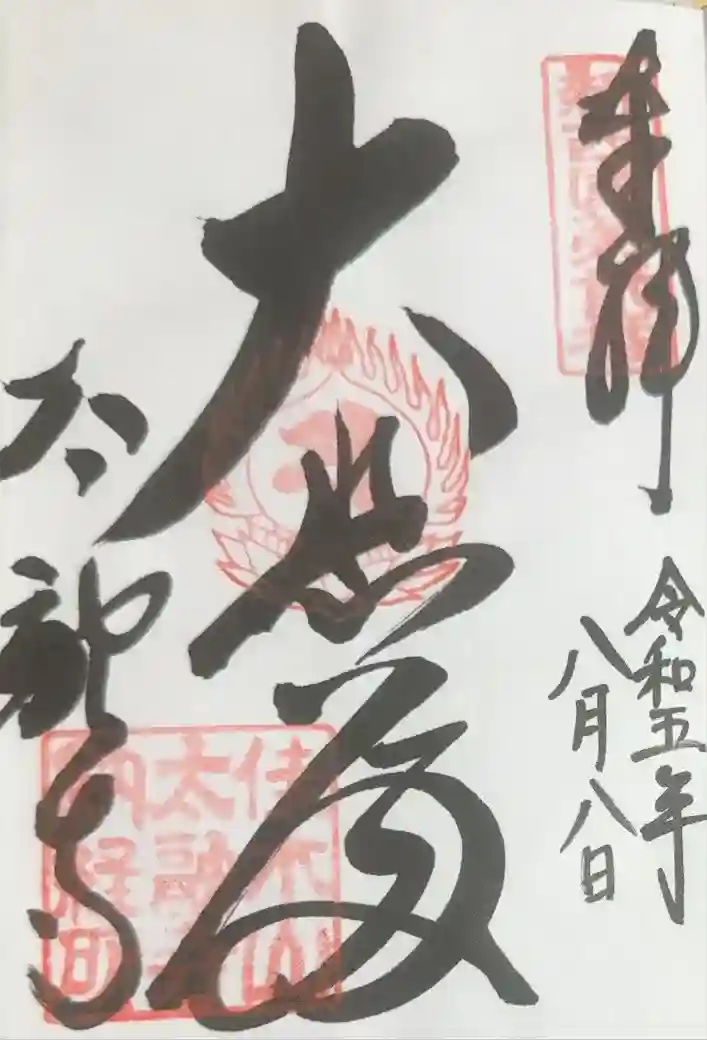 奉拝
令和五年
八月八日
大悲
太融寺
佳木山
太融寺
納経印